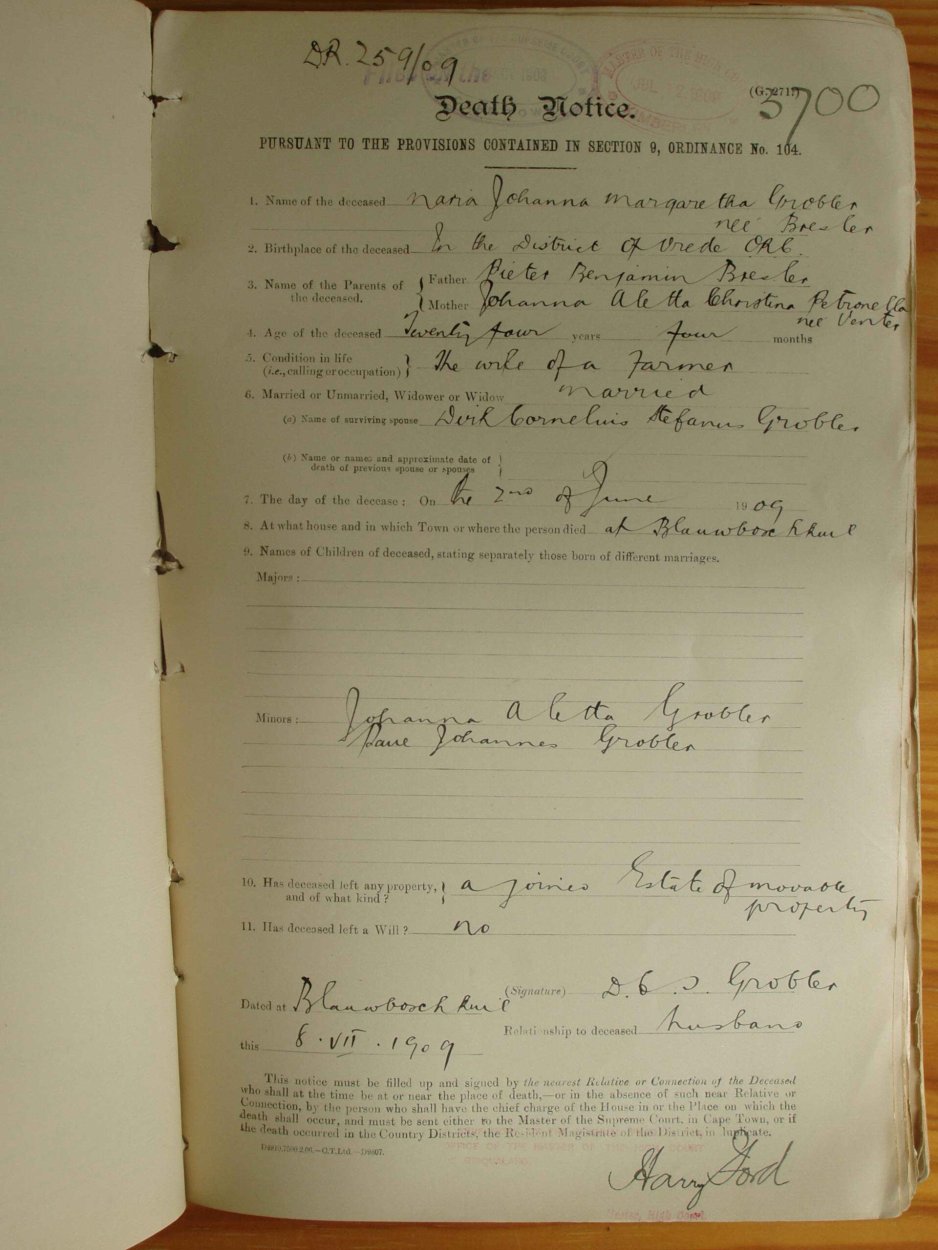 DR. 259/09
(G. 271)
3700
Death Notice.
PURSUANT TO THE PROVISIONS CONTAINED IN SECTION 9, ORDINANCE No. 104.
1. Name of the deceased Maria Johanna Margaretha Grobler
neé Bresler
2. Birthplace of the deceased In the District of Vrede ORC.
3. Name of the Parents of the deceased. Father Pieter Benjamin Bresler
Mother Johanna Aletta Christina Petronella
neé Venter
4. Age of the deceased Twenty four years four months
5. Condition in life
(i.e., calling or occupation) the wife of a Farmer
6. Married or Unmarried, Widower or Widow married
(a) Name of surviving spouse Dirk Cornelius Stefanus Grobler
(b) Name or names and approximate date of
death of previous spouse or spouses
7. The day of the decease; On the 2nd of June 1909
8. At what house and in which Town or where the person died at Blauwboschkuil
9. Names of Children of deceased, stating separately those born of different marriages.
Majors:
Minors: Johanna Aletta Grobler
Johannes Grobler
10. Has deceased left any property,
and of what kind? a joined Estate of movable
property
11. Has deceased left a Will? no
(Signature) D. C. S. Grobler
Dated at Blauwboschkuil
Relationship to deceased husband
this 8. VII. 1909
This notice must be filled up and signed by the nearest Relative or Connection of the Deceased
who shall at the time be at or near the place of death,—or in the absence of such near Relative or
Connection, by the person who shall have the chief charge of the House in or the Place on which the
death shall occur, and must be sent either to the Master of the Supreme Court, in Cape Town, or if
the death occurred in the Country Districts, the Resident Magistrate of the District, in duplicate.
Harry Ford